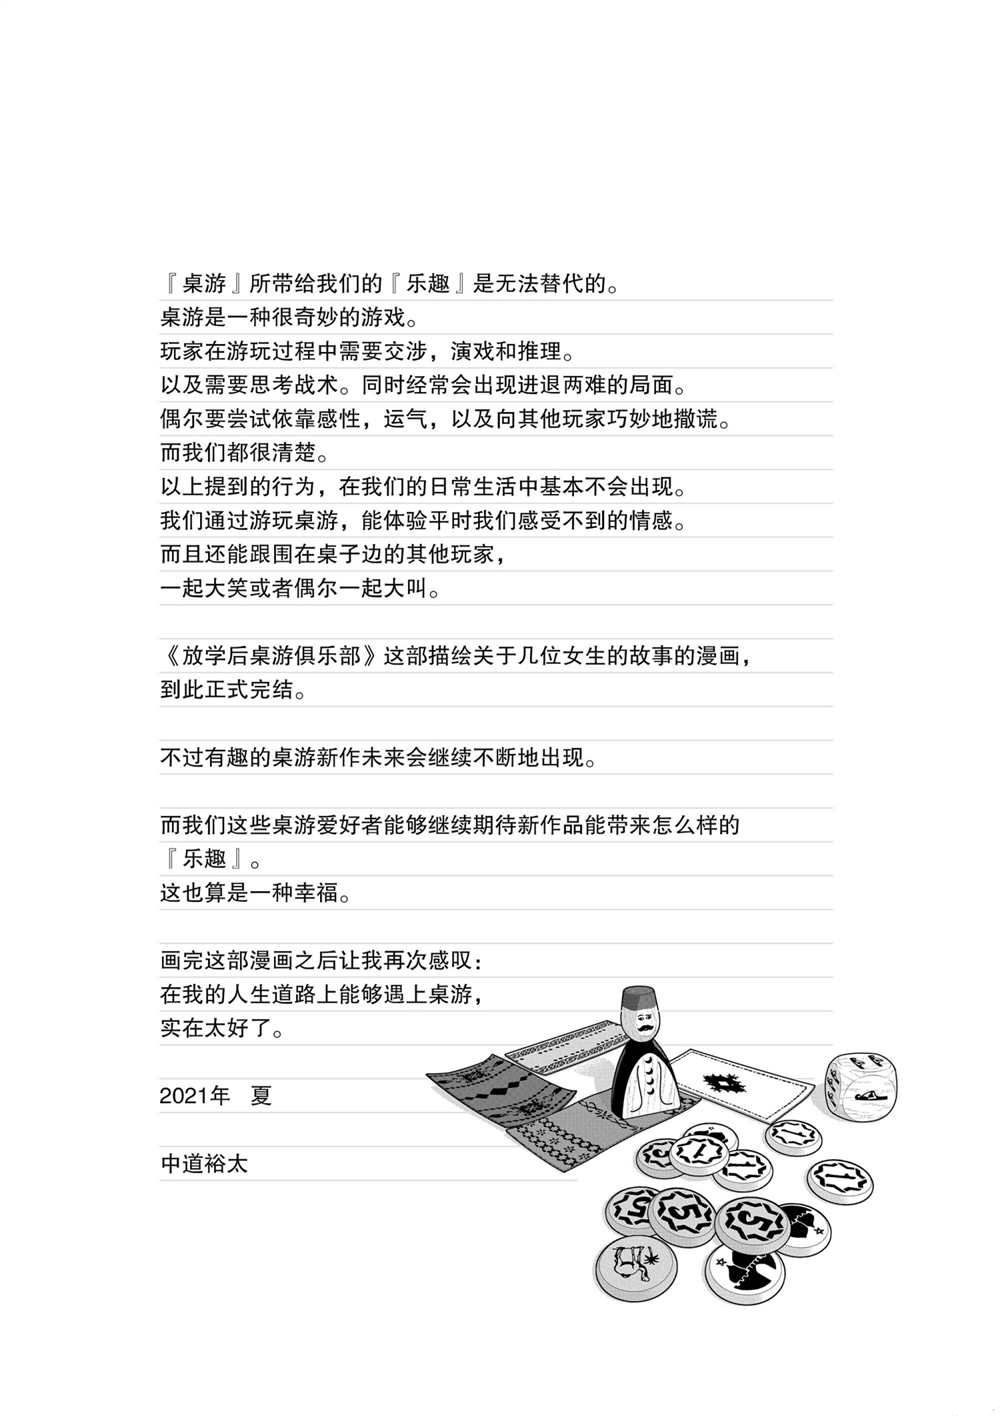 『桌游』所带给我们的『乐趣』是无法替代的。
桌游是一种很奇妙的游戏。
玩家在游玩过程中需要交涉，演戏和推理。
以及需要思考战术。同时经常会出现进退两难的局面。
偶尔要尝试依靠感性，运气，以及向其他玩家巧妙地撒谎。
而我们都很清楚。
以上提到的行为，在我们的日常生活中基本不会出现。
我们通过游玩桌游，能体验平时我们感受不到的情感。
而且还能跟围在桌子边的其他玩家，
一起大笑或者偶尔一起大叫。
《放学后桌游俱乐部》这部描绘关于几位女生的故事的漫画，
到此正式完结。
不过有趣的桌游新作未来会继续不断地出现。
而我们这些桌游爱好者能够继续期待新作品能带来怎么样的
『乐趣』。
这也算是一种幸福。
画完这部漫画之后让我再次感叹：
在我的人生道路上能够遇上桌游，
实在太好了。
2021年　夏
中道裕太
1
3
1
1
1
5
5
5